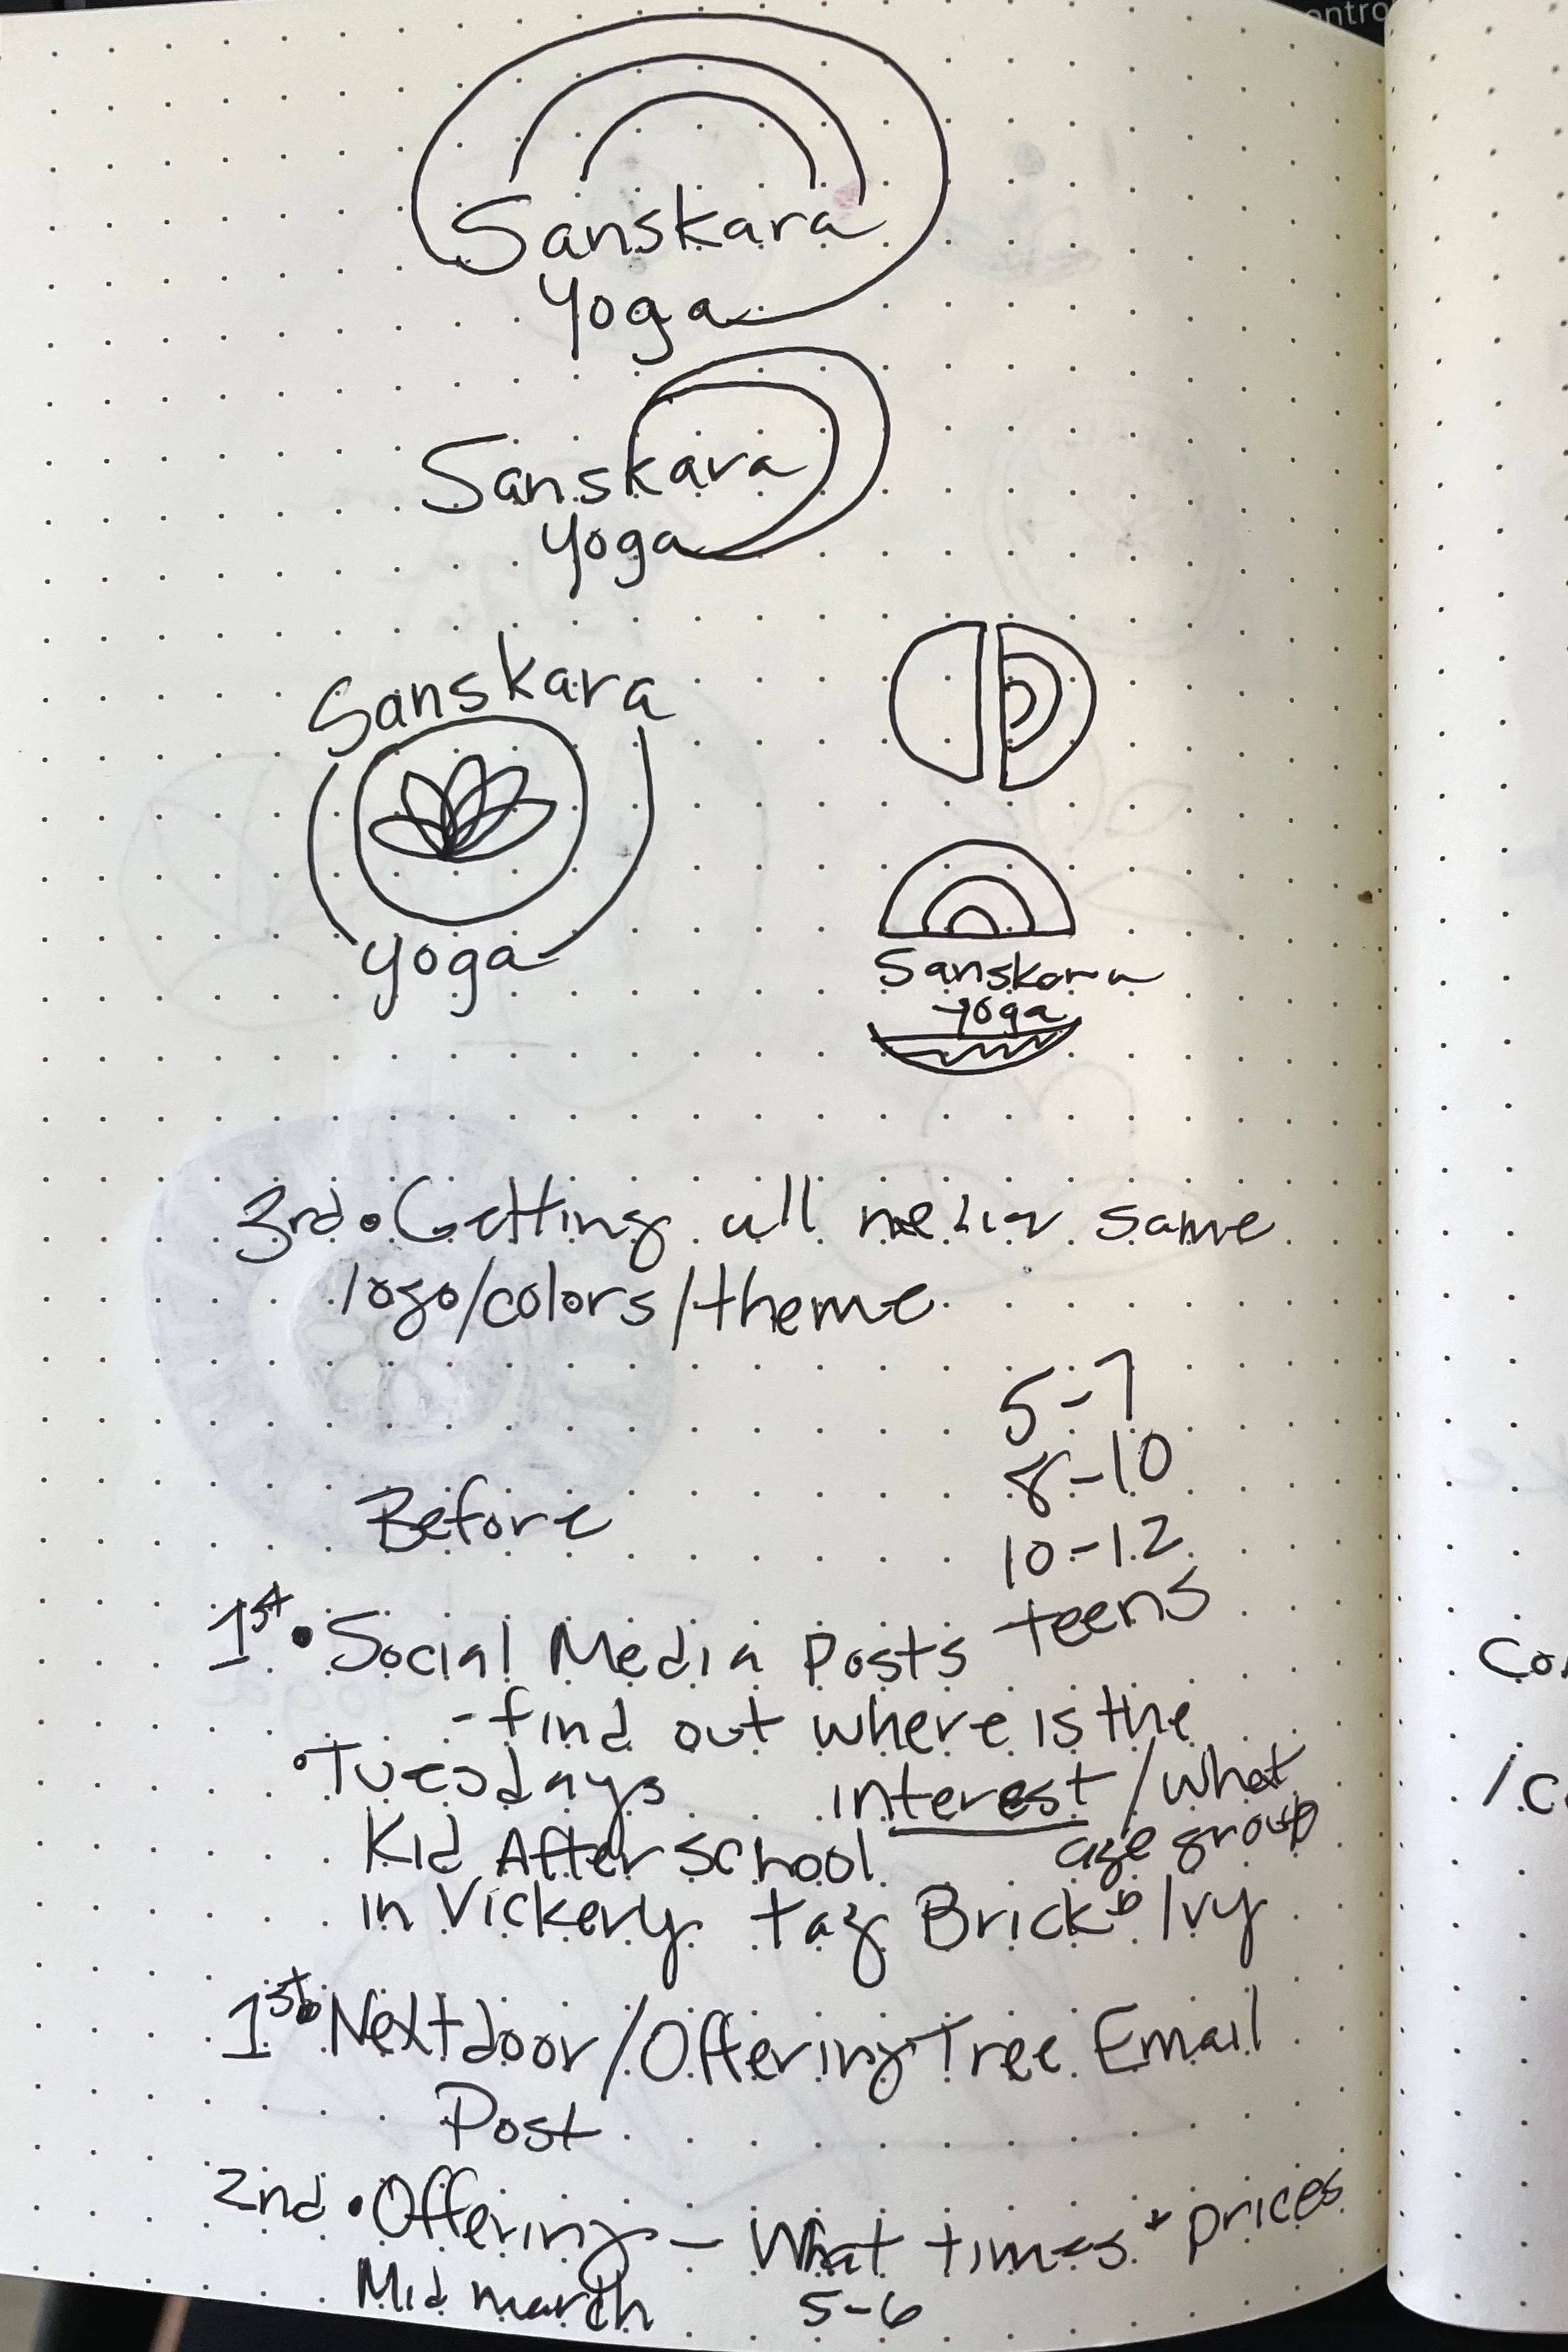 ontro
Sanskara
Yoga
Sanskara
Yoga
Sanskara
yoga
Sanskara
yoga
3rd • Getting all same
logo/colors/theme
5-7
8-10
10-12
teens
Before
1st • Social Media Posts
- find out where is the
interest/what
age group
• Tuesdays
Kid After school
in Vickery tag Brick Ivy
1st Nextdoor/Offering Tree Email
Post
2nd • Offering - What times + prices
Mid march 5-6
Co
/C